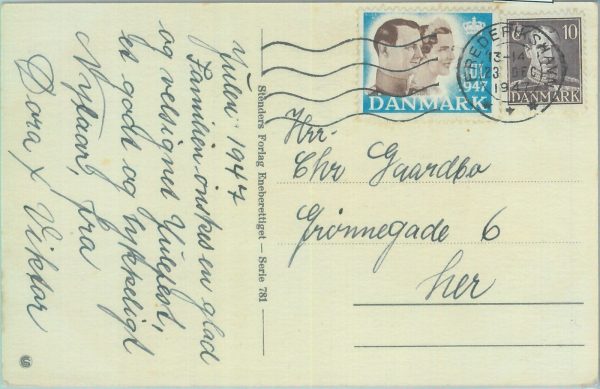 Julen 1947
Familien ønskes en glad
og velsignet Julefest,
et godt og lykkeligt
Nytaar, fra
Dora & Viktor
Stenders Forlag Eneberettiget — Serie 781
JUL
1947
DANMARK
10
DANMARK
FREDERIKSHAVN
13-14
23
194
Hrr.
Chr Gaardbo
Grønnegade 6
her